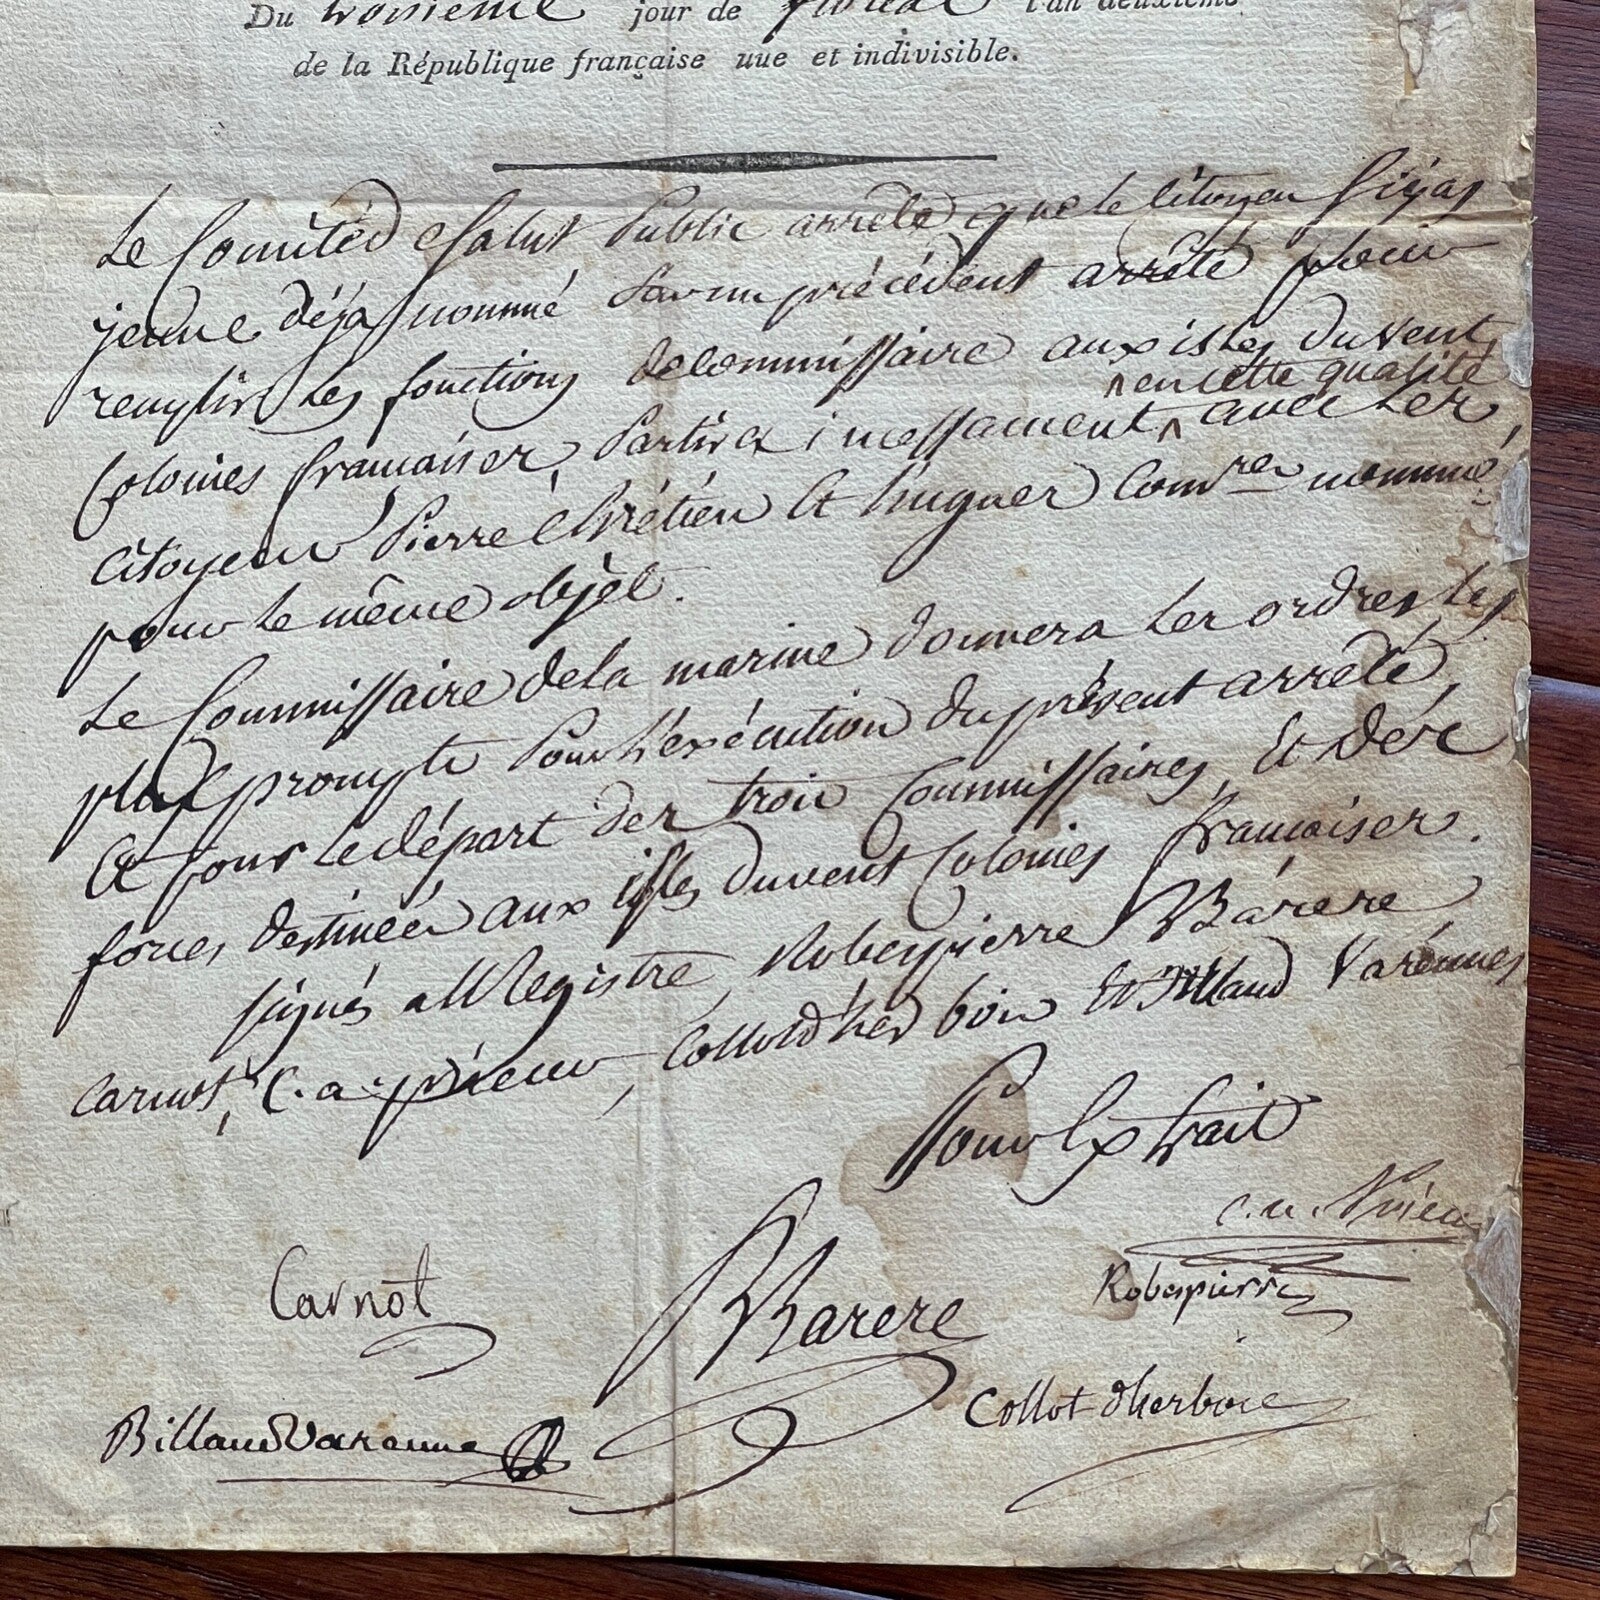 Du troisieme jour de floréal l'an deuxieme
de la République française uue et indivisible.
Le Comité d Salut Public arrête que le Citoyen Sijas
jeune déja nommé Par un précédent arrêté pour
remplir les fonctions de Commissaire aux isles du vent
en cette qualité
Colonies françaises, Partira incessament avec Les
Citoyens Pierre Chrétien et hugues Comres nommés
pour le même objet.
Le Commissaire de la marine donnera Les ordres les
plus prompts Pour l'exécution du présent arrêté,
et pour le départ des trois Commissaires, et des
forces destinées aux isles du vent Colonies françaises.
signés au Registre, Robespierre Barere
Carnot, C. a prieur, Collot d'herbois et Billaud Varennes
Pour Extrait
C. A. Prieur
Carnot
Barere
Robespierre
Billaud Varenne
Collot d'herbois